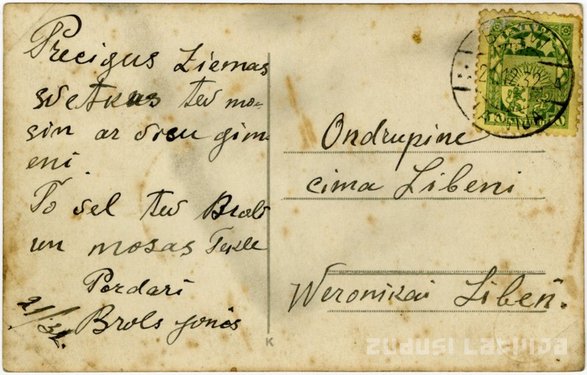 Precigus Ziemas
svetkus tev mo-
sin ar visu gim-
eni
To vel tev Brols
un mosas Tekle
Pordari
Brols Jonos
2/I 32.
Ondrupine
cima Libeni
Weronikai Libeń.
K
zudusi Latvija